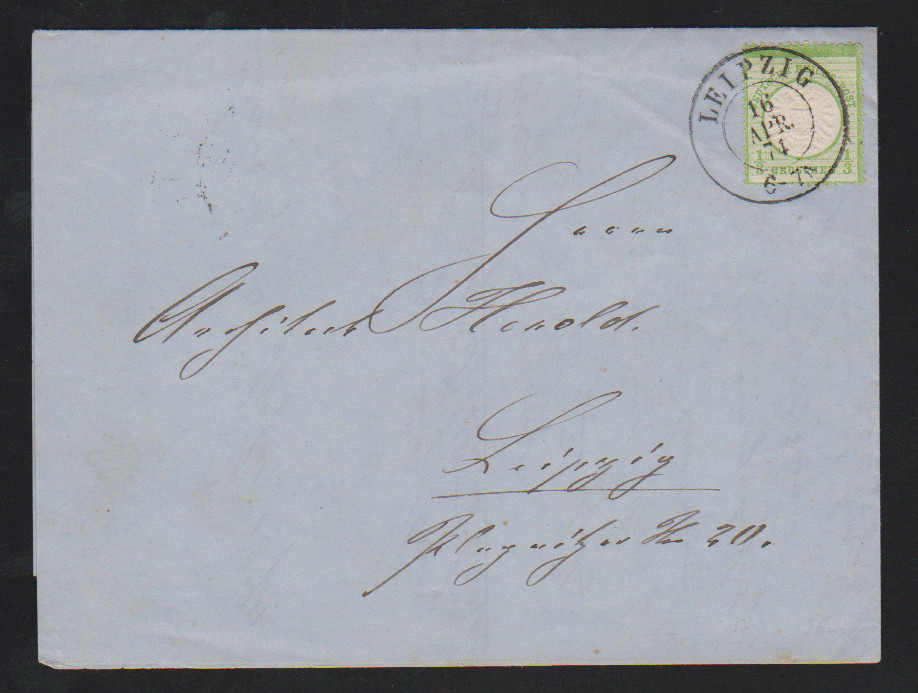 LEIPZIG
16
APR.
74
6-7N
1/3 GROSCHEN 1/3
Herrn
Architect Herold.
Leipzig
Plagwitzer 20.